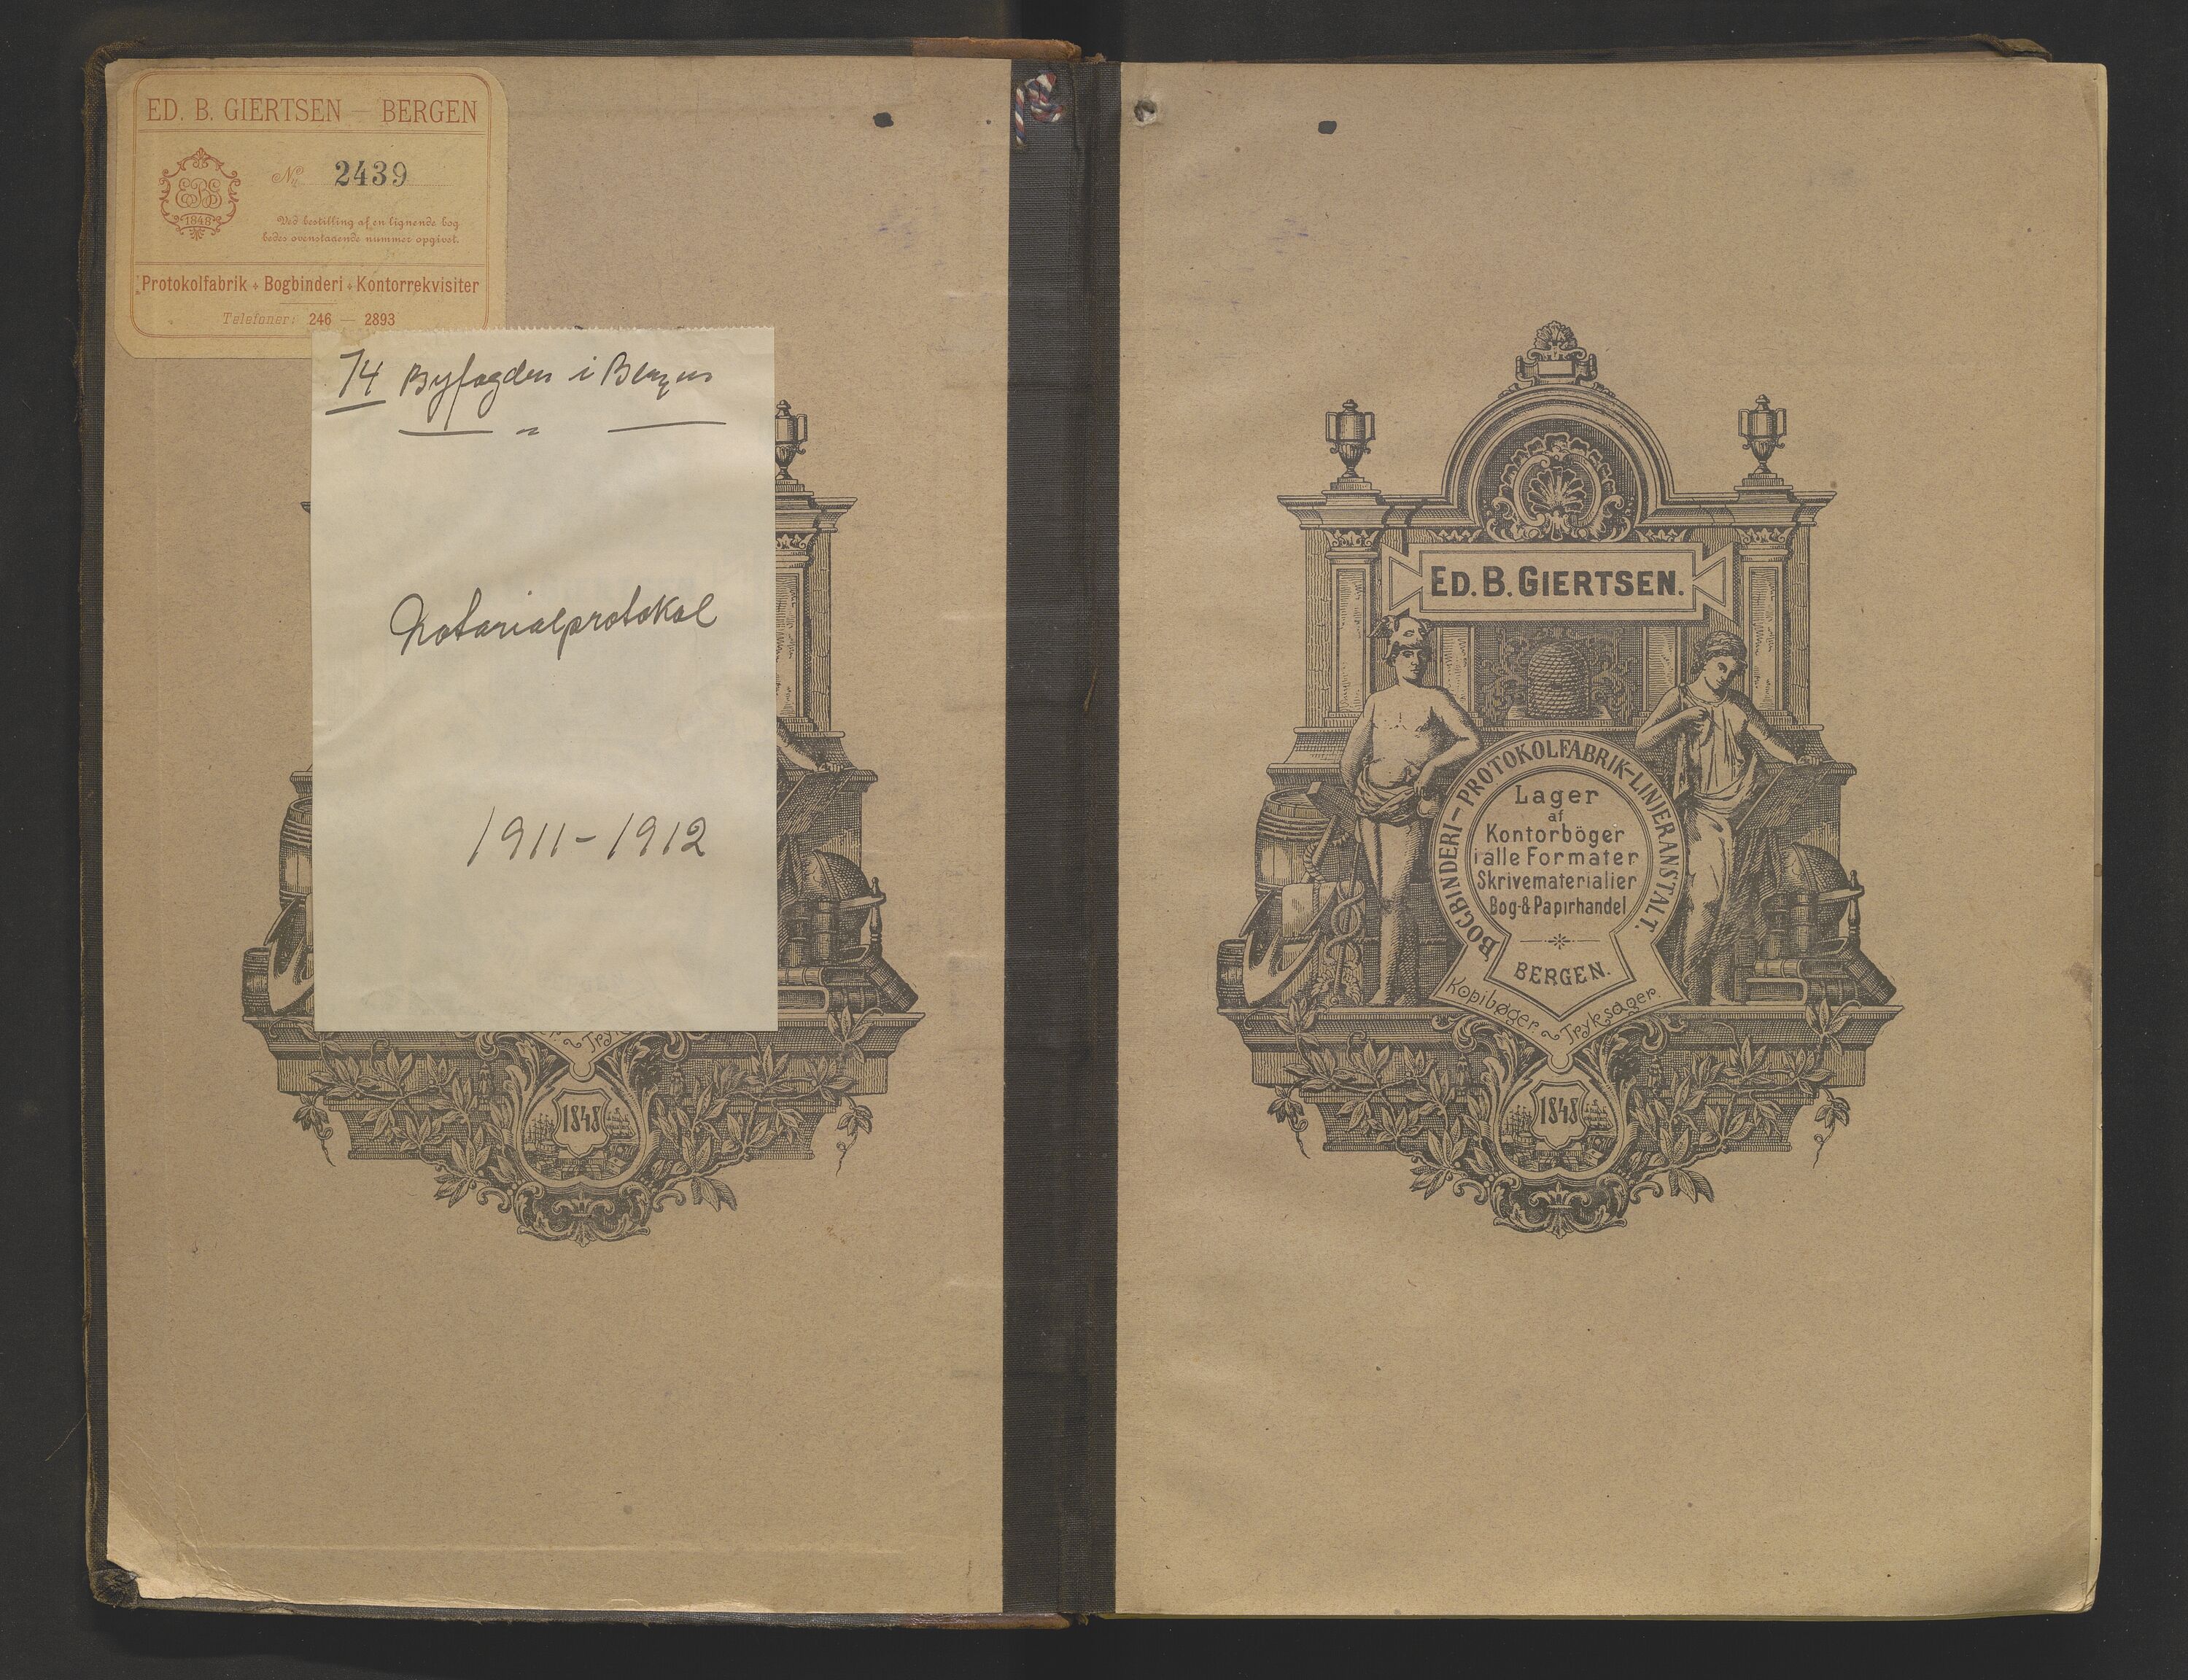 ED. B. GIERTSEN — BERGEN
EBG
1848
No. 2439
Ved bestilling af en lignende bog
bedes ovenstaaende nummer opgivet.
Protokolfabrik + Bogbinderi + Kontorrekvisiter
Telefoner: 246 — 2893
74 Byfogden i Bergen
Notarialprotokol
1911-1912
~ Try
1848
ED. B. GIERTSEN.
BOGBINDERI - PROTOKOLFABRIK - LINJERANSTALT.
Lager
af
Kontorböger
i alle Formater
Skrivematerialier
Bog- & Papirhandel
BERGEN.
Kopibøger ~ Tryksager.
1848